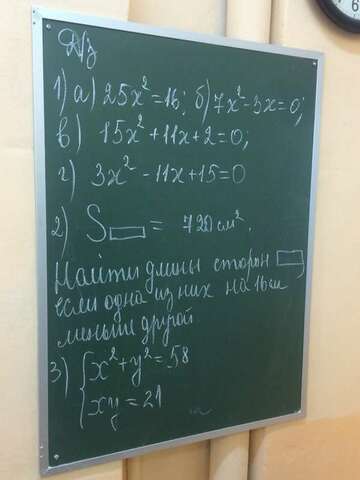 Д/з
1) а) 25x² = 16; б) 7x² - 3x = 0;
в) 15x² + 11x + 2 = 0;
г) 3x² - 11x + 15 = 0
2) S▭ = 720 см².
Найти длины сторон ▭,
если одна из них на 16 см
меньше другой
3) { x² + y² = 58
xy = 21